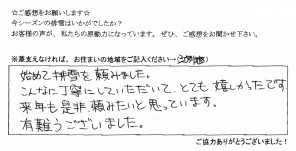 ☆ご感想をお願いします☆
今シーズンの排雪はいかがでしたか?
お客様の声が、私たちの原動力になっています。ぜひ、ご感想をお聞かせ下さい。
※差支えなければ、お住まいの地域をご記入ください→(      )
始めて排雪を頼みました。
こんなに丁寧にしていただいて、とても嬉しかったです。
来年も是非頼みたいと思っています。
有難うございました。
ご協力ありがとうございました!